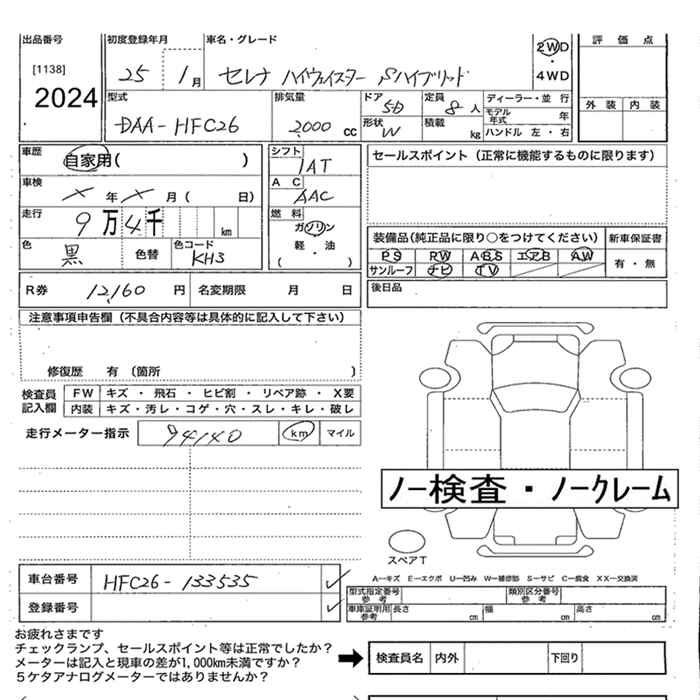 出品番号 初度登録年月 車名・グレード 評価点
[1138] 25 1月 セレナ ハイウェイスター Sハイブリッド 2WD・4WD
2024 型式 排気量 ドア 5D 定員 8人 ディーラー・並行 外装 内装
DAA-HFC26 2,000 cc 形状 W 積載 kg モデル年式 年
ハンドル 左・右
車歴 自家用( ) シフト 1AT セールスポイント（正常に機能するものに限ります）
車検 × 年 × 月 ( 日) AC AAC
走行 9万4千 km 燃料 ガソリン 軽・油 ・ ( ) 装備品（純正品に限り○をつけてください） 新車保証書
色 黒 色替 色コード KH3 PS PW ABS エアB AW 有・無
サンルーフ ナビ TV
R券 12,160 円 名変期限 月 日 後日品
注意事項申告欄（不具合内容等は具体的に記入して下さい）
修復歴 有（箇所 ）
検査員記入欄 FW キズ ・ 飛石 ・ ヒビ割 ・ リペア跡 ・ X要
内装 キズ・汚レ・コゲ・穴・スレ・キレ・破レ
走行メーター指示 94140 km マイル
ノー検査・ノークレーム
スペアT
A－キズ E－エクボ U－凹み W－補修跡 S－サビ C－腐食 XX－交換済
車台番号 HFC26-133535 型式指定番号参考 類別区分番号参考
登録番号 車庫証明用参考 長さ cm 幅 cm 高さ cm
お疲れさまです
チェックランプ、セールスポイント等は正常でしたか？
メーターは記入と現車の差が1,000km未満ですか？
5ケタアナログメーターではありませんか？
検査員名 内外 下回り